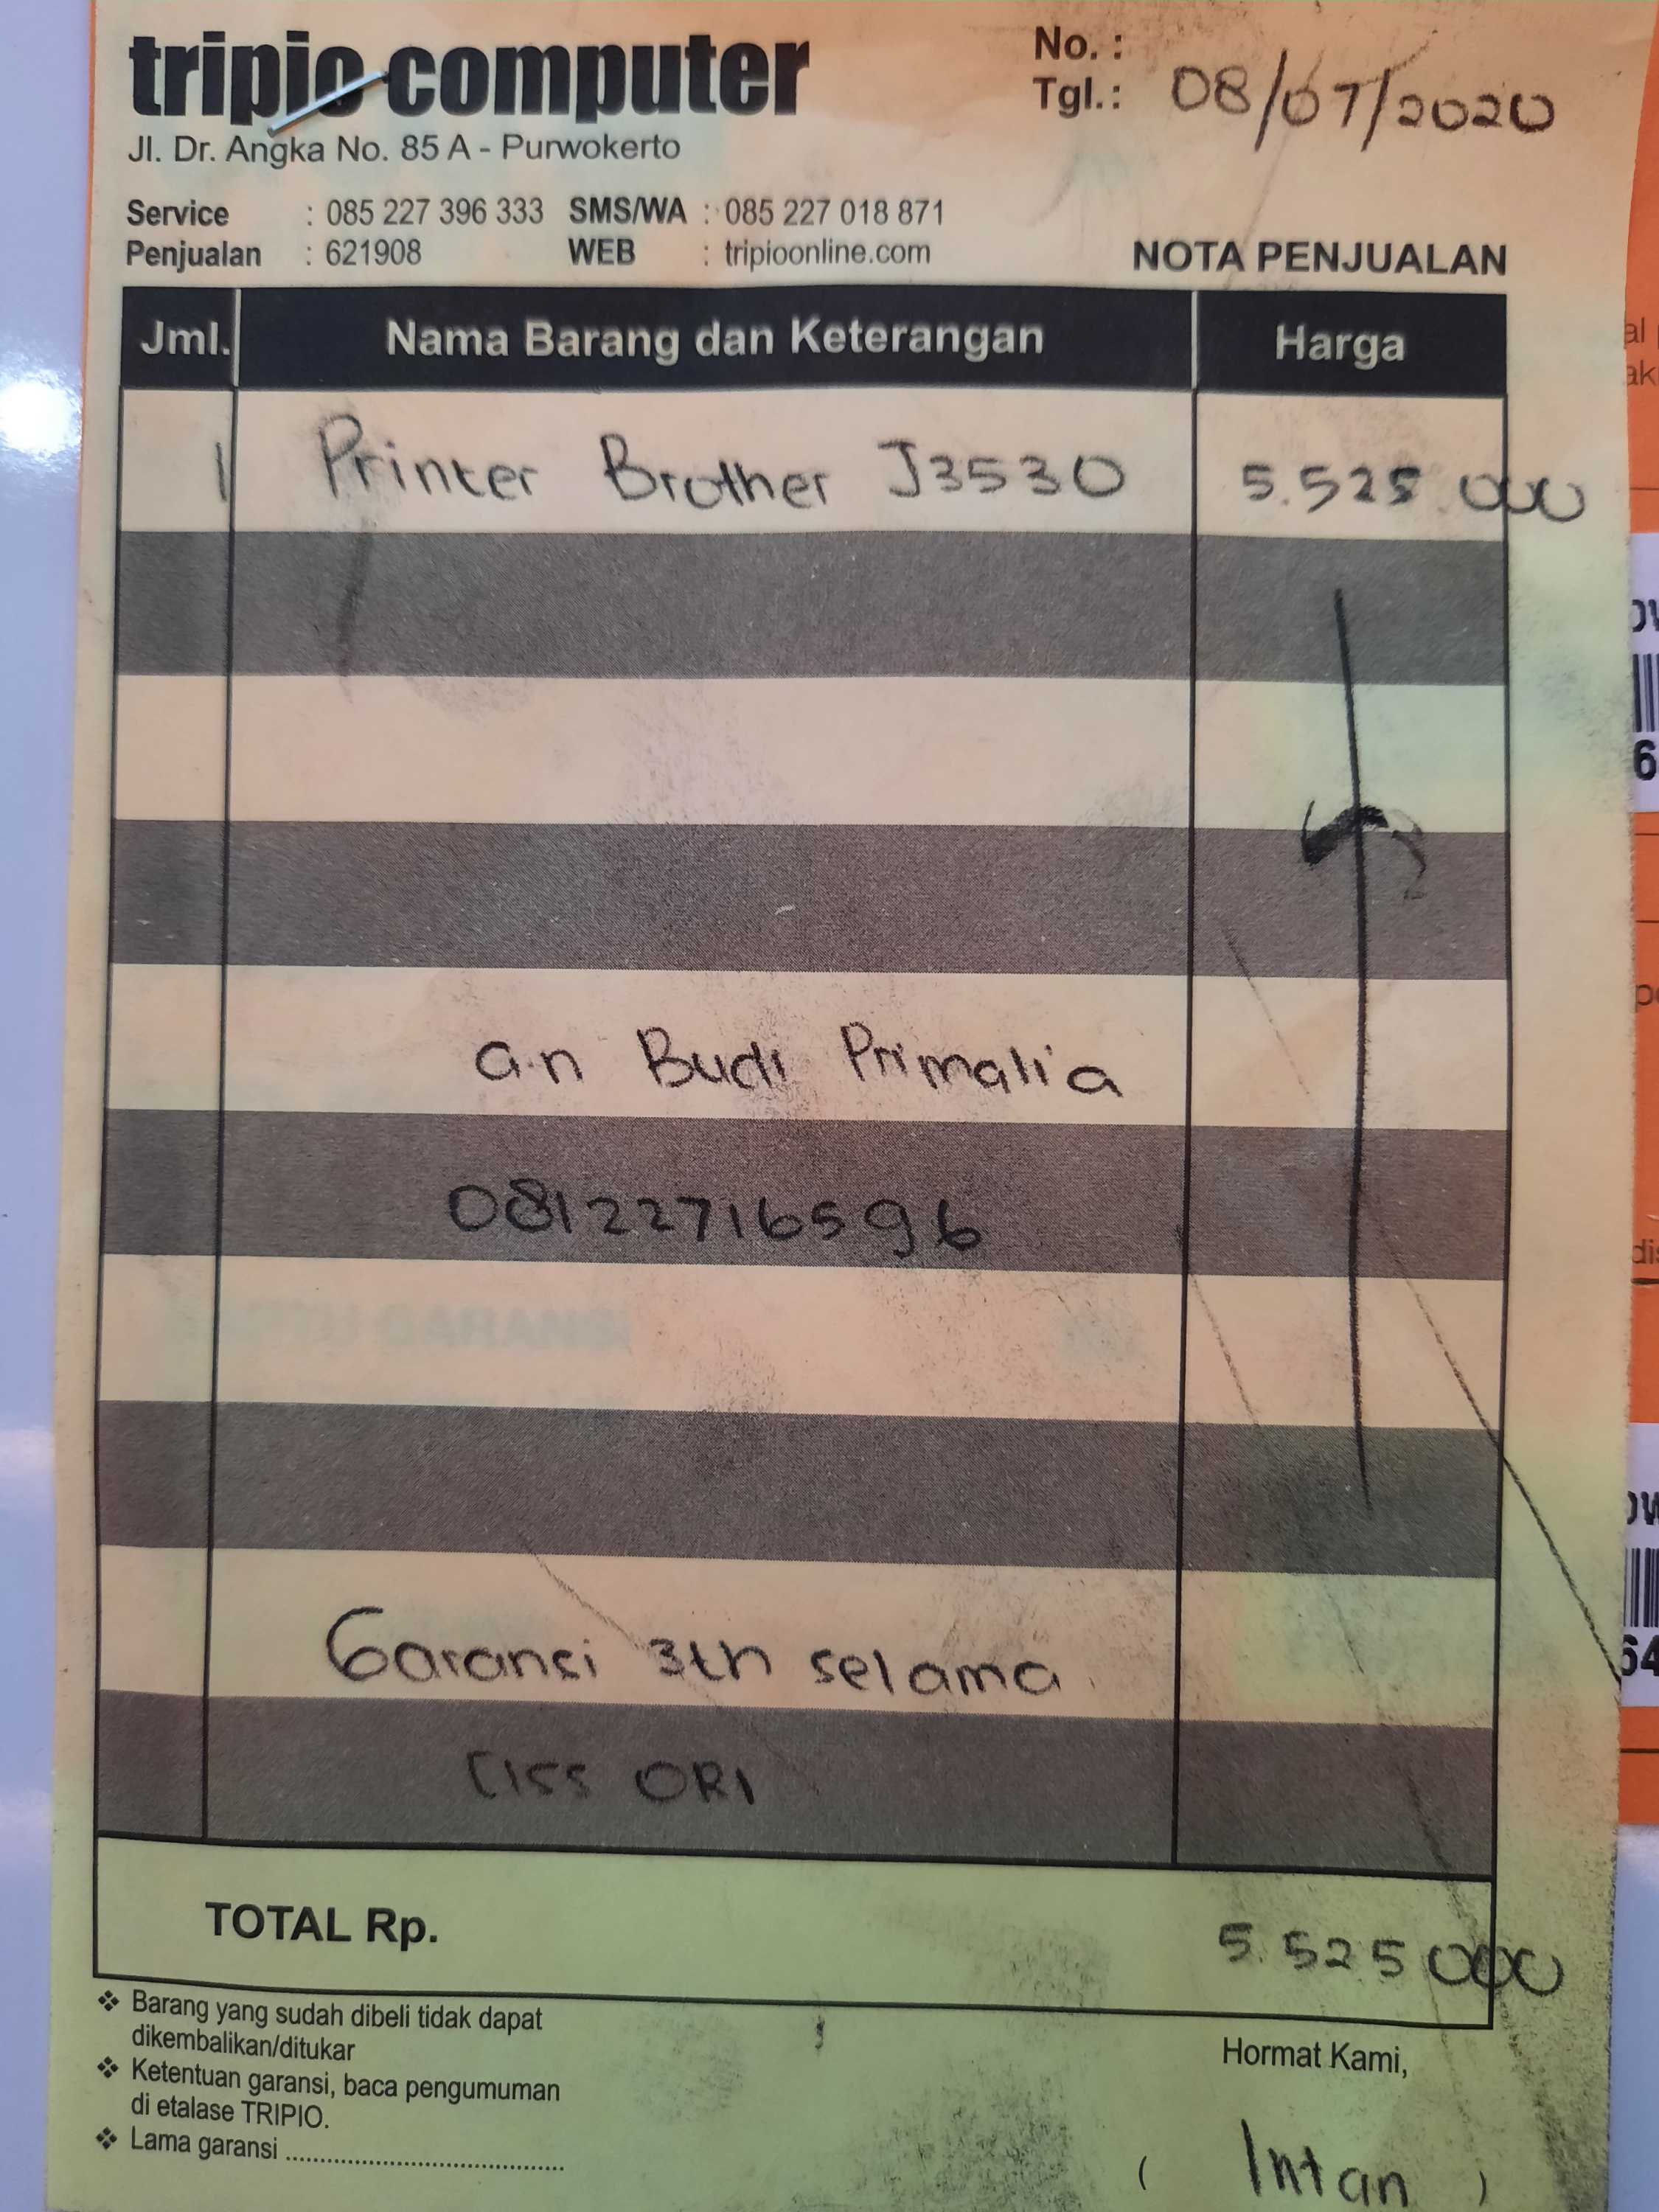 tripio computer
Jl. Dr. Angka No. 85 A - Purwokerto
No. :
Tgl.: 08/07/2020
Service : 085 227 396 333 SMS/WA : 085 227 018 871
Penjualan : 621908 WEB : tripioonline.com
NOTA PENJUALAN
Jml. Nama Barang dan Keterangan Harga
1 Printer Brother J3530 5.525.000
a.n Budi Primalia
081227716596
GARANSI
Garansi 3th selama
CISS ORI
TOTAL Rp. 5.525000
❖ Barang yang sudah dibeli tidak dapat
dikembalikan/ditukar
❖ Ketentuan garansi, baca pengumuman
di etalase TRIPIO.
❖ Lama garansi ........................................
Hormat Kami,
( Intan )